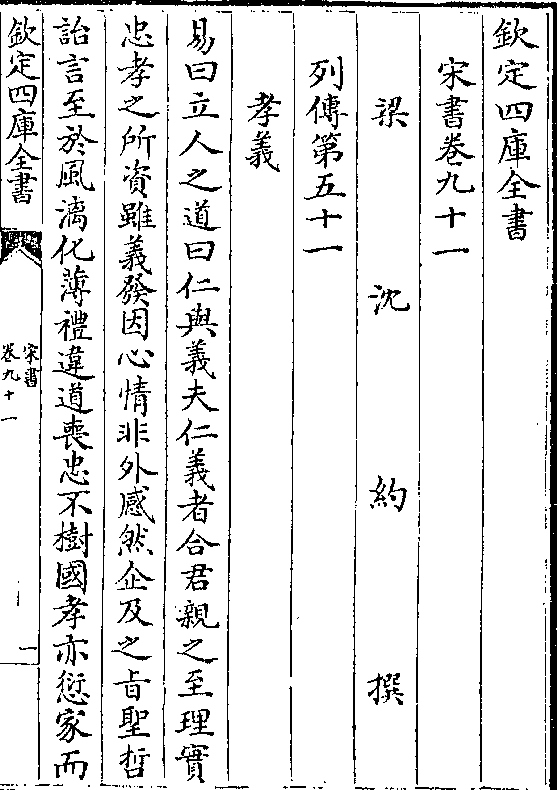 欽定四庫全書
宋書卷九十一
梁沈約撰
列傳第五十一
孝義
易曰立人之道曰仁與義夫仁義者合君親之至理實
忠孝之所資雖義發因心情非外感然企及之旨聖哲
詒言至於風漓化薄禮違道喪忠不樹國孝亦愆家而
欽定四庫全書
宋書
卷九十一
一